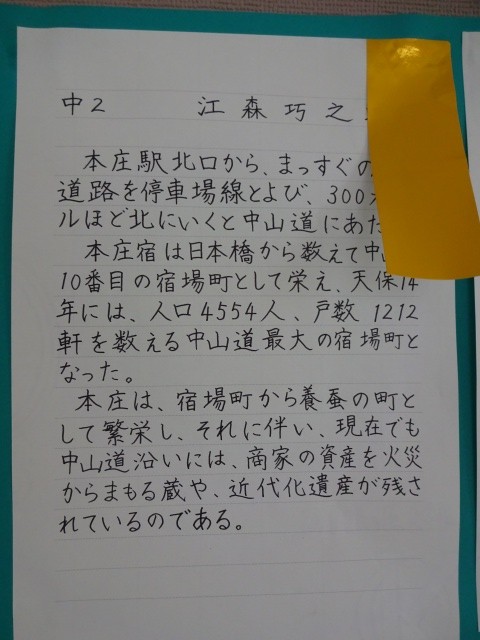 中2 江森巧之
本庄駅北口から、まっすぐの
道路を停車場線とよび、300
ルほど北にいくと中山道にあた
本庄宿は日本橋から数えて中
10番目の宿場町として栄え、天保14
年には、人口4554人、戸数1212
軒を数える中山道最大の宿場町と
なった。
本庄は、宿場町から養蚕の町と
して繁栄し、それに伴い、現在でも
中山道沿いには、商家の資産を火災
からまもる蔵や、近代化遺産が残さ
れているのである。